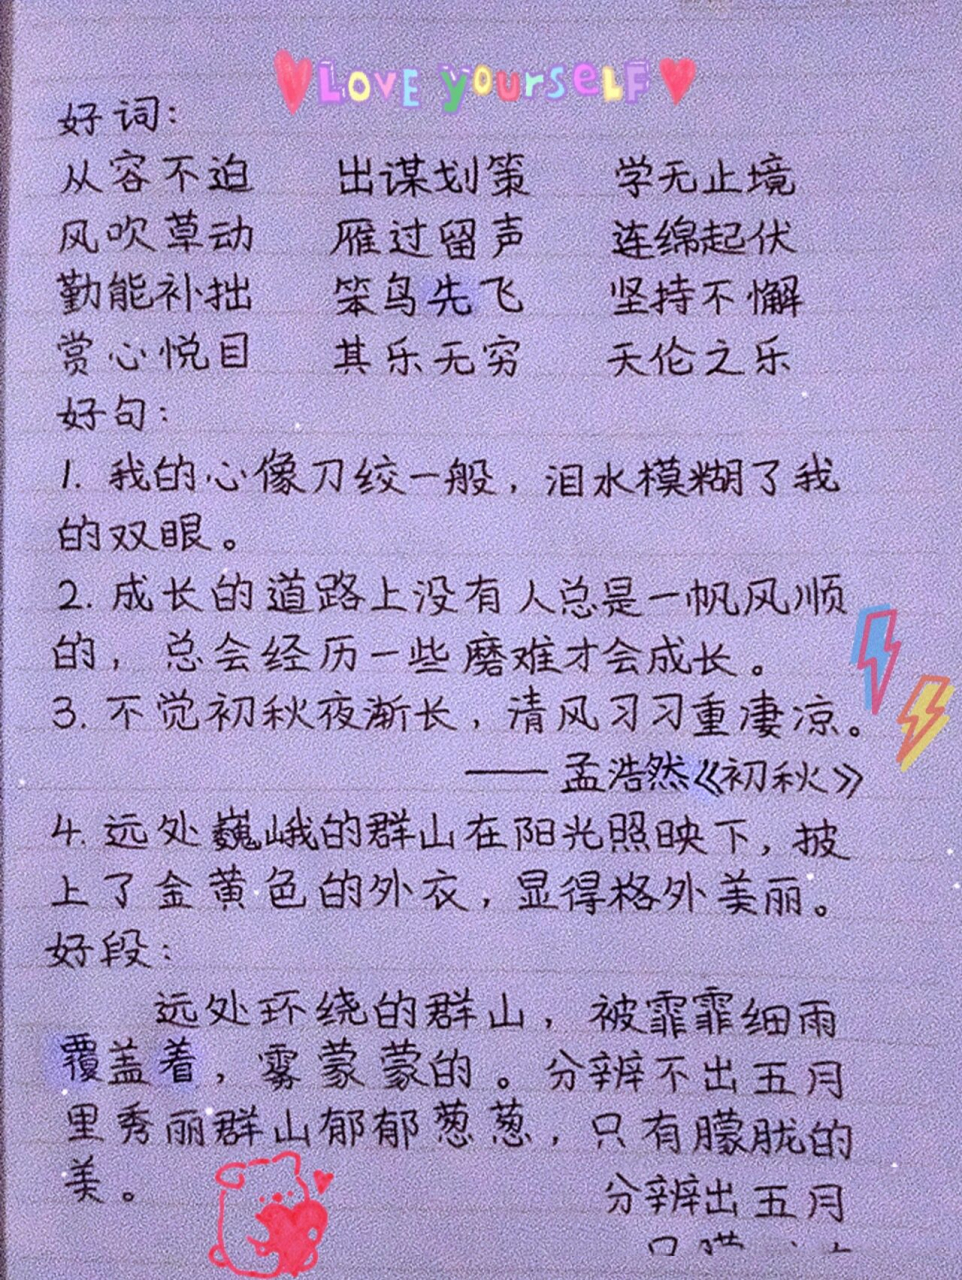 LOVE yourself
好词：
从容不迫 出谋划策 学无止境
风吹草动 雁过留声 连绵起伏
勤能补拙 笨鸟先飞 坚持不懈
赏心悦目 其乐无穷 天伦之乐
好句：
1. 我的心像刀绞一般，泪水模糊了我
的双眼。
2. 成长的道路上没有人总是一帆风顺
的，总会经历一些磨难才会成长。
3. 不觉初秋夜渐长，清风习习重凄凉。
——孟浩然《初秋》
4. 远处巍峨的群山在阳光照映下，披
上了金黄色的外衣，显得格外美丽。
好段：
远处环绕的群山，被霏霏细雨
覆盖着，雾蒙蒙的。分辨不出五月
里秀丽群山郁郁葱葱，只有朦胧的
美。
分辨出五月